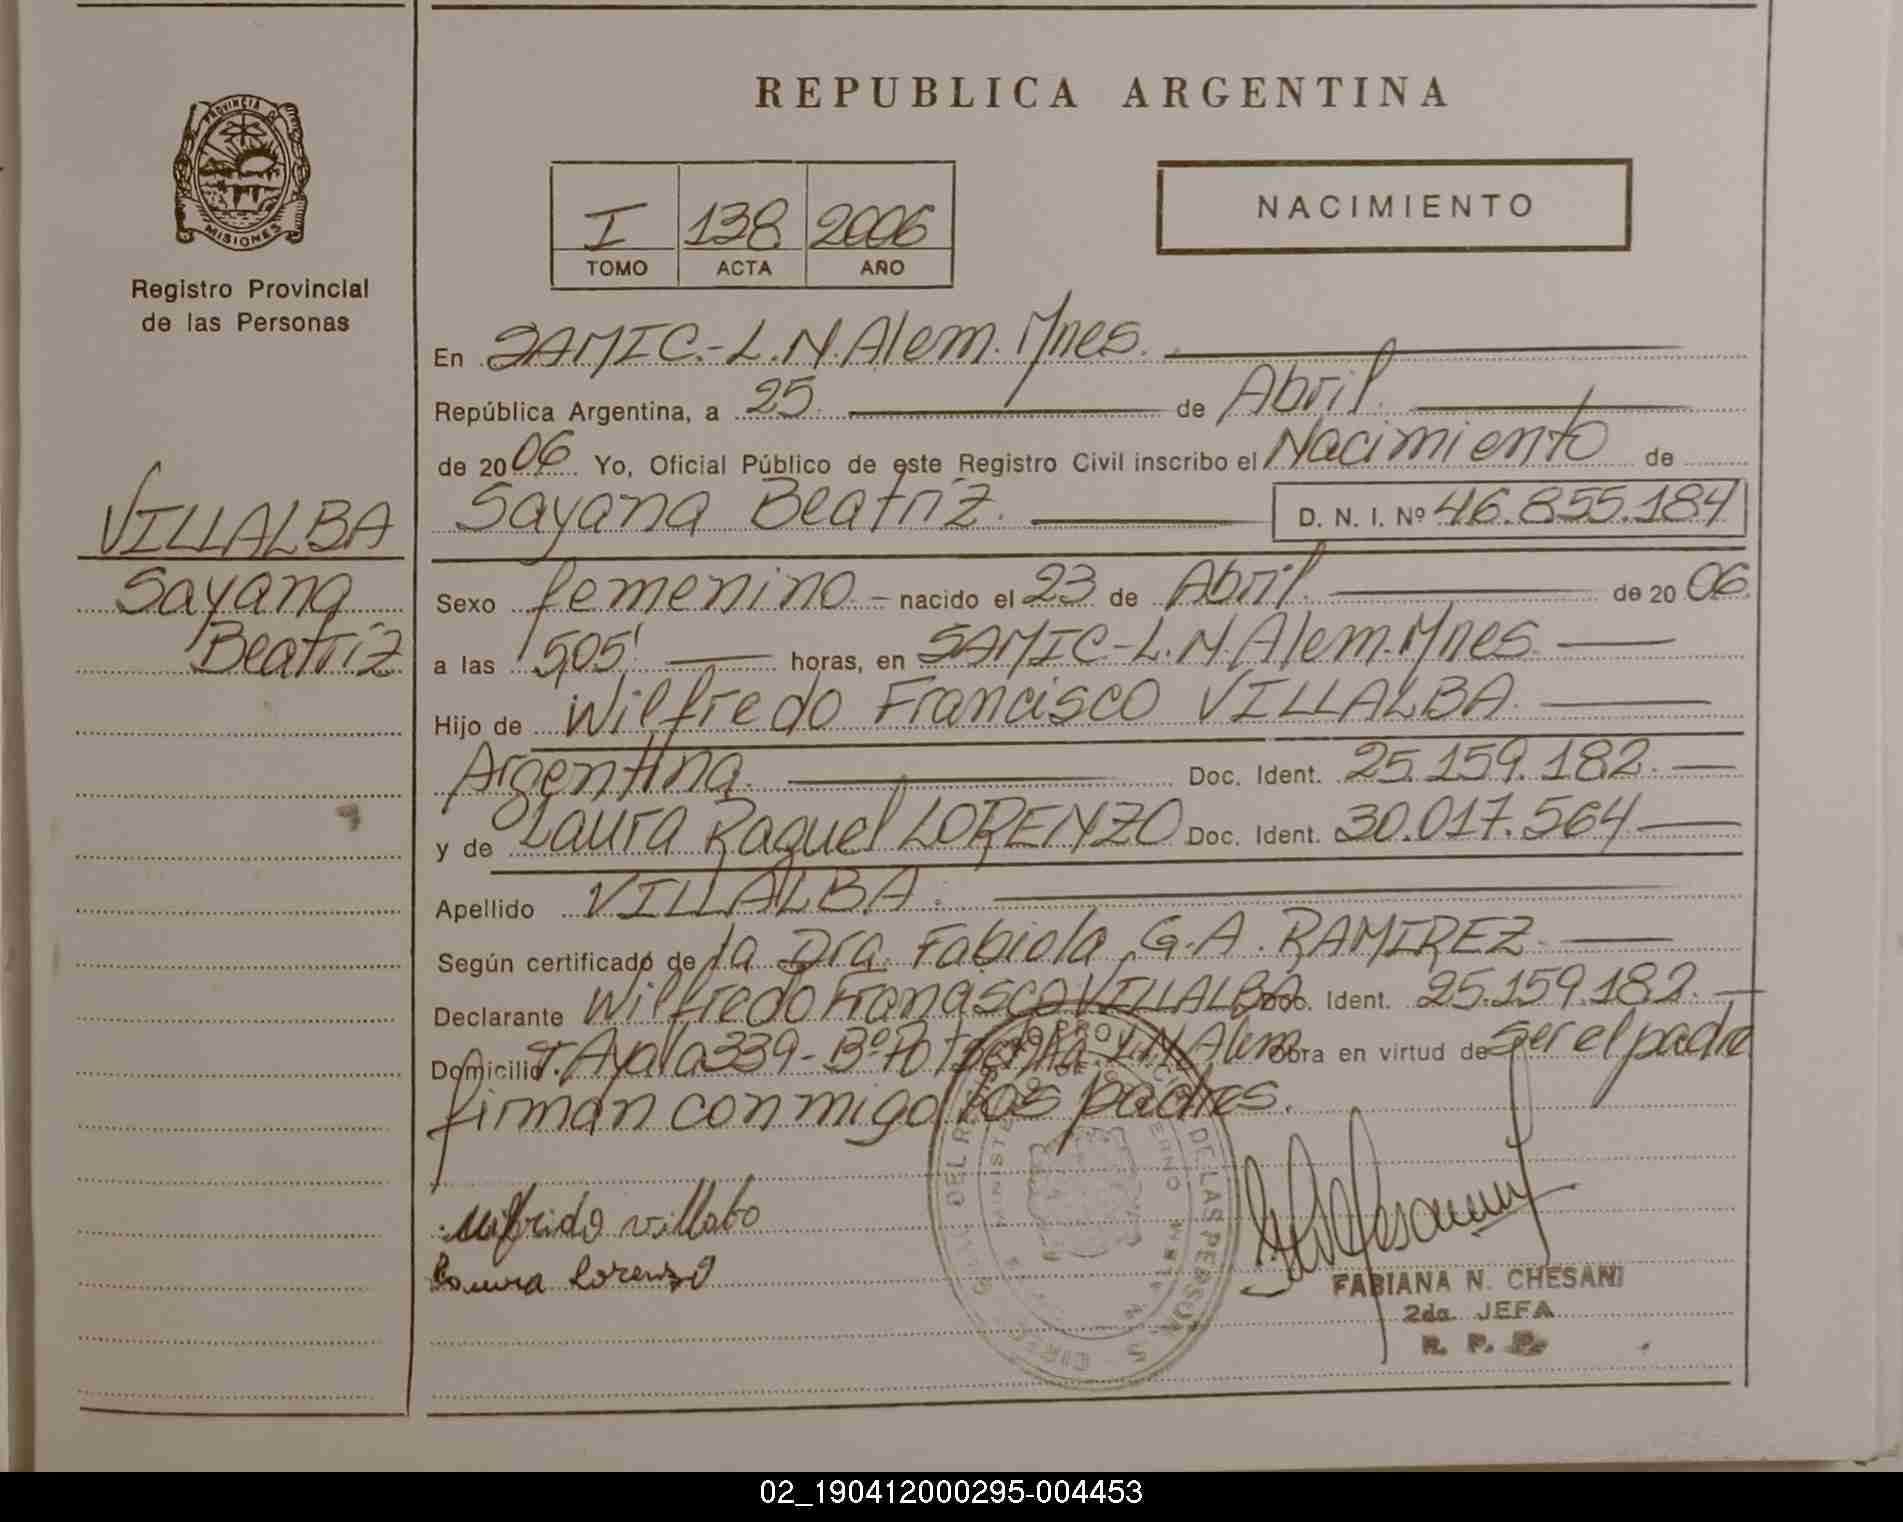 REPUBLICA ARGENTINA
PROVINCIA DE
MISIONES
Registro Provincial
de las Personas
I 138 2006
TOMO ACTA AÑO
NACIMIENTO
VILLALBA
Sayana
Beatriz
En SAMIC.-L.N.Alem.Mnes.
República Argentina, a 25 de Abril
de 2006 Yo, Oficial Público de este Registro Civil inscribo el Nacimiento de
Sayana Beatriz. D. N. I. Nº 46.855.184
Sexo femenino - nacido el 23 de Abril de 2006
a las 1505' horas, en SAMIC-L.N.Alem.Mnes
Hijo de Wilfredo Francisco VILLALBA
Argentina. Doc. Ident. 25.159.182.
y de Laura Raquel LORENZO Doc. Ident. 30.017.564
Apellido VILLALBA.
Según certificado de la Dra. Fabiola G.A. RAMIREZ
Declarante Wilfredo Francisco VILLALBA Doc. Ident. 25.159.182.
Domicilio Ayala 339-Bº L.N.Alem Obra en virtud de ser el padre
firman conmigo los padres.
Wilfrido Villalba
Laura Lorenzo
FABIANA N. CHESANI
2da. JEFA
R. P. P.
02_190412000295-004453